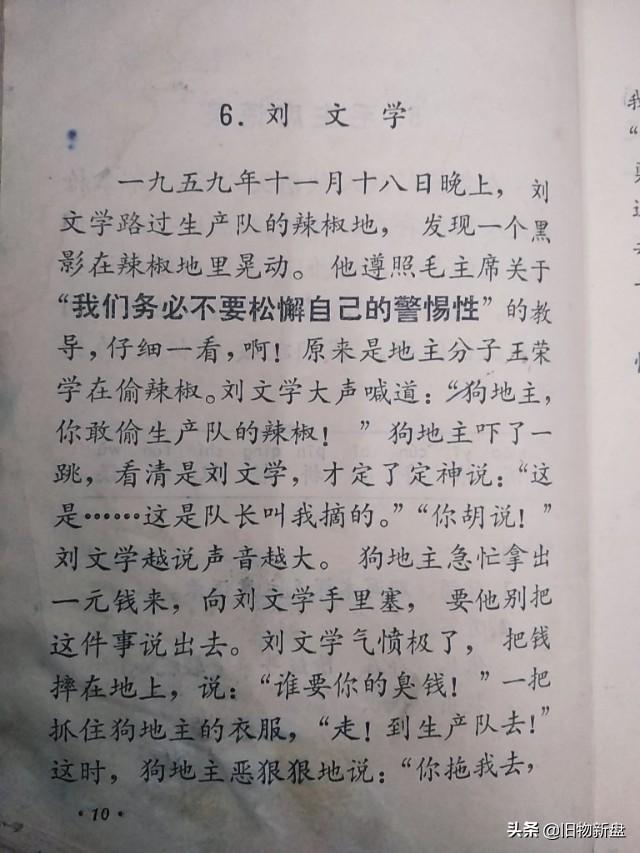 6. 刘文学
一九五九年十一月十八日晚上，刘
文学路过生产队的辣椒地，发现一个黑
影在辣椒地里晃动。他遵照毛主席关于
“我们务必不要松懈自己的警惕性”的教
导，仔细一看，啊！原来是地主分子王荣
学在偷辣椒。刘文学大声喊道：“狗地主，
你敢偷生产队的辣椒！”狗地主吓了一
跳，看清是刘文学，才定了定神说：“这
是……这是队长叫我摘的。”“你胡说！”
刘文学越说声音越大。狗地主急忙拿出
一元钱来，向刘文学手里塞，要他别把
这件事说出去。刘文学气愤极了，把钱
摔在地上，说：“谁要你的臭钱！”一把
抓住狗地主的衣服，“走！到生产队去！”
这时，狗地主恶狠狠地说：“你拖我去，
·10·
头条 @旧物新盘